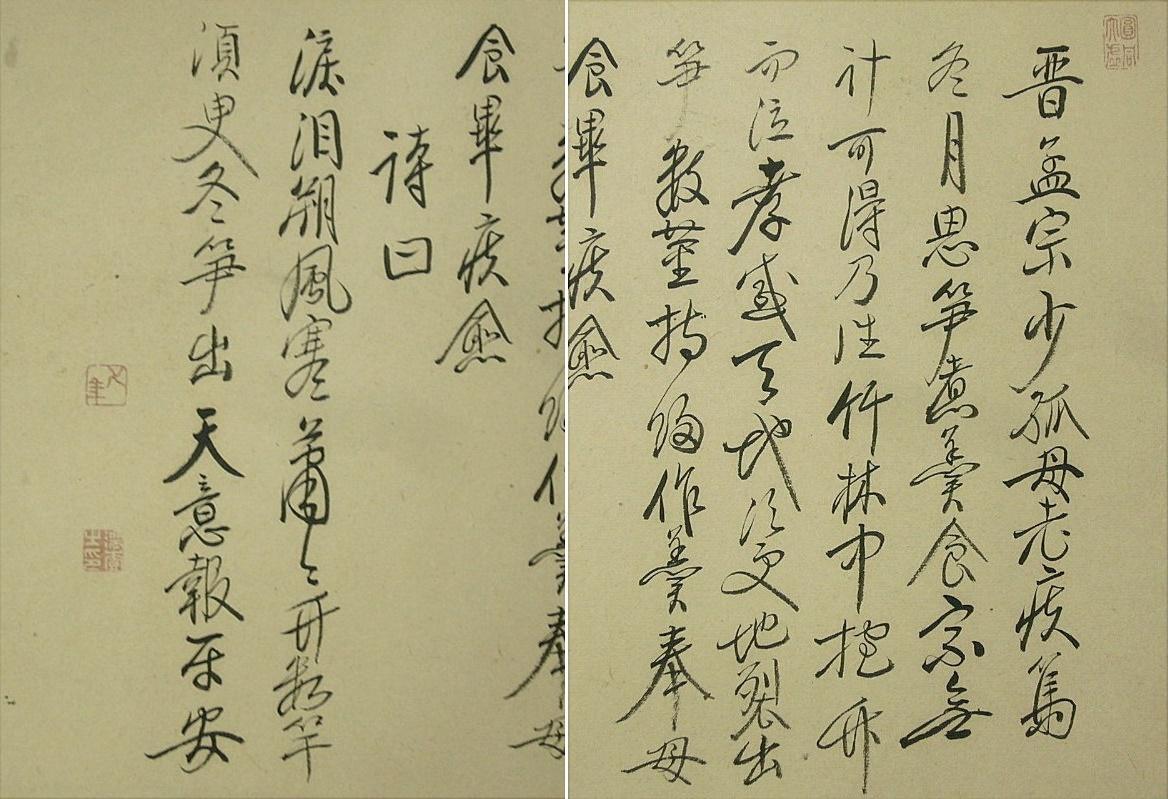 晋孟宗少孤母老疾篤
冬月思笋煮羹食宗無
计可得乃往竹林中抱竹
而泣孝感天地須臾地裂出
笋數莖持歸作羹奉母
食畢疾愈
食畢疾愈
詩曰
淚泪朔風寒蕭々竹數竿
須臾冬笋出天意報平安